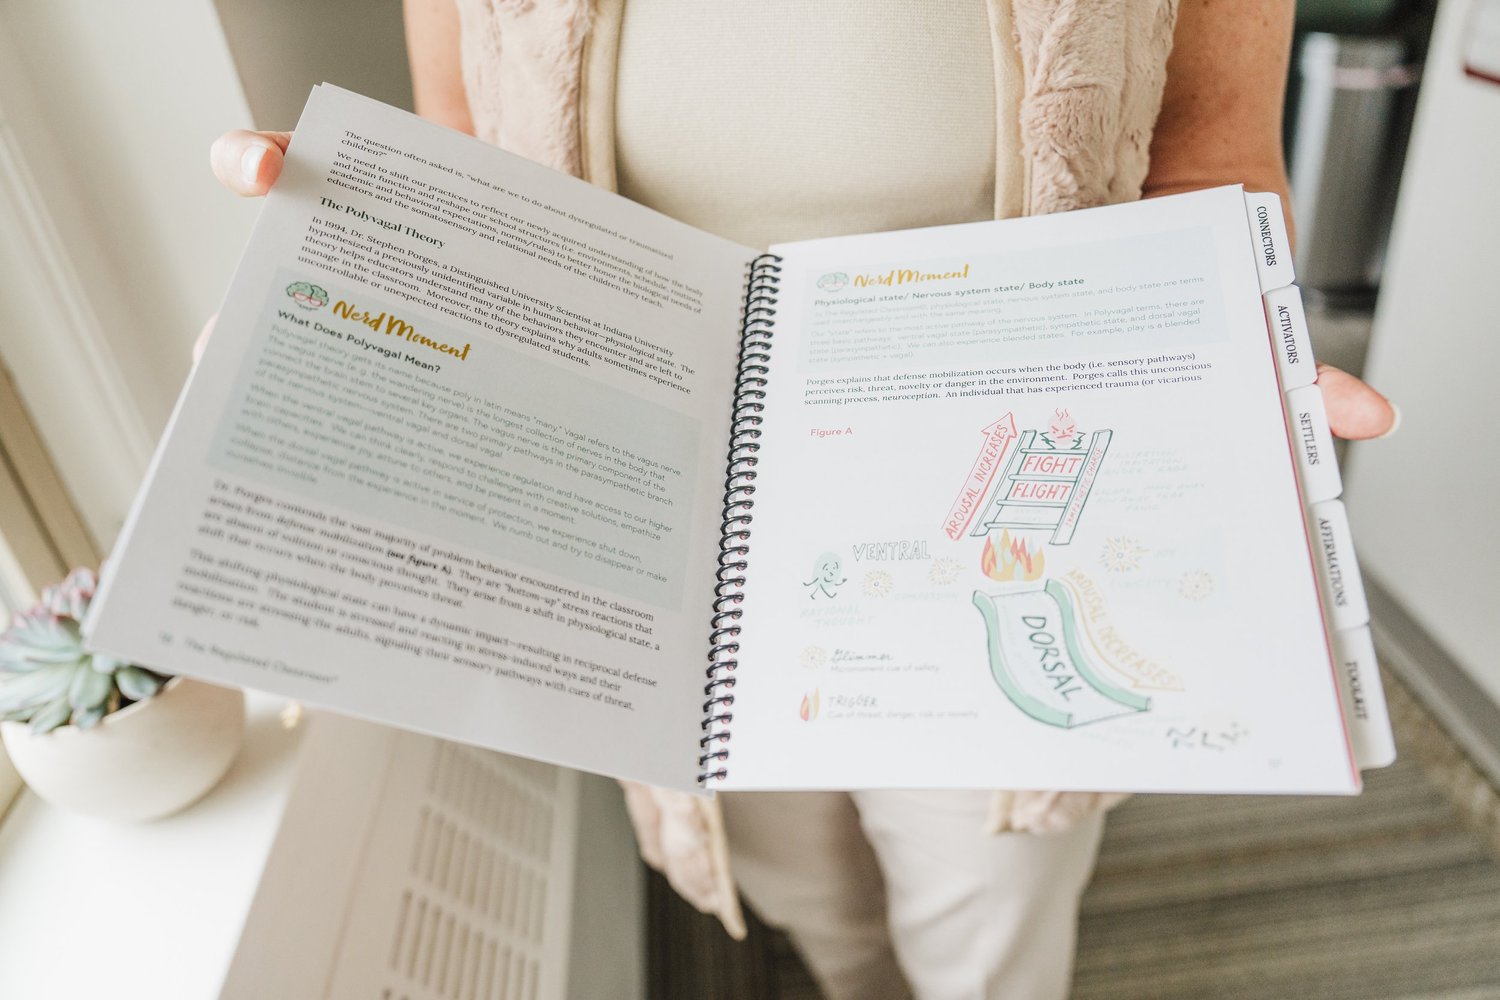 The question often asked is, "what are we to do about dysregulated or traumatized
children?"
We need to shift our practices to reflect our newly acquired understanding of how the body
and brain function and reshape our school structures (i.e. environments, schedule, routines,
academic and behavioral expectations, norms/rules) to better honor the biological needs of
educators and the somatosensory and relational needs of the children they teach.
The Polyvagal Theory
In 1994, Dr. Stephen Porges, a Distinguished University Scientist at Indiana University
hypothesized a previously unidentified variable in human behavior—physiological state. The
theory helps educators understand many of the behaviors they encounter and are left to
manage in the classroom. Moreover, the theory explains why adults sometimes experience
uncontrollable or unexpected reactions to dysregulated students.
Nerd Moment
What Does Polyvagal Mean?
Polyvagal theory gets its name because poly in latin means "many." Vagal refers to the vagus nerve.
The vagus nerve (e.g. the wandering nerve) is the longest collection of nerves in the body that
connect the brain stem to several key organs. The vagus nerve is the primary component of the
parasympathetic nervous system. There are two primary pathways in the parasympathetic branch
of the nervous system—ventral vagal and dorsal vagal.
When the ventral vagal pathway is active, we experience regulation and have access to our higher
brain capacities. We can think clearly, respond to challenges with creative solutions, empathize
with others, experience joy, attune to others, and be present in a moment.
When the dorsal vagal pathway is active in service of protection, we experience shut down,
collapse, distance from the experience in the moment. We numb out and try to disappear or make
ourselves invisible.
Dr. Porges contends the vast majority of problem behavior encountered in the classroom
arises from defense mobilization (see figure A). They are "bottom-up" stress reactions that
are absent of volition or conscious thought. They arise from a shift in physiological state, a
shift that occurs when the body perceives threat.
This shifting physiological state can have a dynamic impact—resulting in reciprocal defense
mobilization. The student is stressed and reacting in stress-induced ways and their
reactions are stressing the adults, signaling their sensory pathways with cues of threat,
danger, or risk.
The Regulated Classroom
Nerd Moment
Physiological state/ Nervous system state/ Body state
In The Regulated Classroom, physiological state, nervous system state, and body state are terms
used interchangeably and with the same meaning.
Our "state" refers to the most active pathway of the nervous system. In Polyvagal terms, there are
three basic pathways: ventral vagal state (parasympathetic), sympathetic state, and dorsal vagal
state (parasympathetic). We can also experience blended states. For example, play is a blended
state (sympathetic + vagal).
Porges explains that defense mobilization occurs when the body (i.e. sensory pathways)
perceives risk, threat, novelty or danger in the environment. Porges calls this unconscious
scanning process, neuroception. An individual that has experienced trauma (or vicarious
Figure A
AROUSAL INCREASES
FIGHT
FLIGHT
VENTRAL
RATIONAL
THOUGHT
COMPASSION
DORSAL
AROUSAL DECREASES
Glimmer
Micromoment cue of safety
TRIGGER
Cue of threat, danger, risk or novelty
CONNECTORS
ACTIVATORS
SETTLERS
AFFIRMATIONS
TOOLKIT